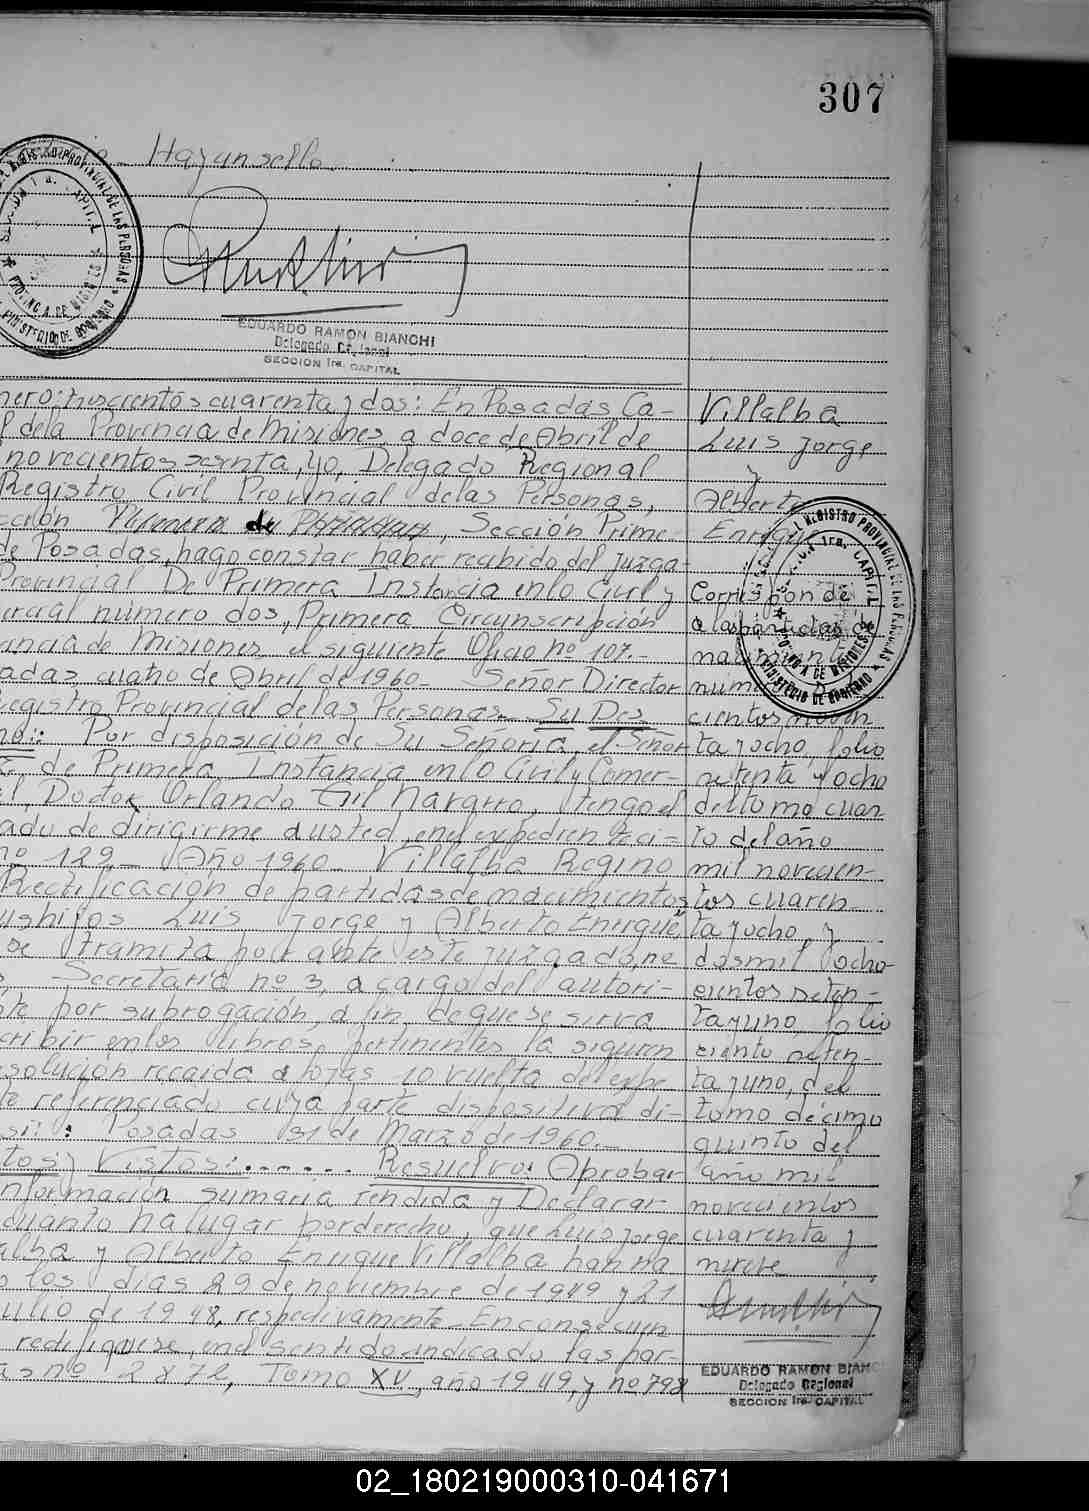 307
Hay un sello
EDUARDO RAMON BIANCHI
Delegado Regional
SECCION 1ra. CAPITAL
REGISTRO PROVINCIAL DE LAS PERSONAS
MINISTERIO DE GOBIERNO
mero: trescientos cuarenta y dos: En Posadas Ca-
l de la Provincia de Misiones a doce de Abril de
novecientos sesenta, yo, Delegado Regional
Registro Civil Provincial de las Personas,
cción de, Sección Prime-
de Posadas, hago constar haber recibido del Juzga-
Provincial De Primera Instancia en lo Civil y
ercial número dos, Primera Circunscripción
incia de Misiones el siguiente Oficio nº 107.-
adas cuatro de Abril de 1960- Señor Director
Registro Provincial de las Personas. Su Des
no:: Por disposición de Su Señoría, el Señor
de Primera Instancia en lo Civil y Comer-
l, Doctor Orlando Gil Navarro, tengo el
ado de dirigirme a usted, en el expediente ci-
nº 129- Año 1960- Villalba Regino
Rectificación de partidas de nacimientos
us hijos Luis Jorge y Alberto Enrique,
se tramita por ante este Juzgado, ne
Secretaría nº 3, a cargo del autori-
nte por subrogación, a fin de que se sirva
cribir en los libros pertinentes la siguien
esolución recaida a fojas 10 vuelta del expe
te referenciado cuya parte dispositiva di-
si: : Posadas 31 de Marzo de 1960.-
tos y Vistos:....... Resuelvo: Aprobar
nformación sumaria rendida y Declarar
cuanto ha lugar por derecho, que Luis Jorge
alba y Alberto Enrique Villalba han na
o los días 29 de noviembre de 1949 y 21
ulio de 1948, respectivamente- En consecuen
rectifíquese, en el sentido indicado las par-
as nº 2871, Tomo XV, año 1949, y nº 798
Villalba
Luis Jorge
y
Alberto
Enrique
Corresponde
a las partidas de
nacimiento
núme
cientos noven
ta y ocho, folio
setenta y ocho
del tomo cuar
to del año
mil novecien-
tos cuaren
ta y ocho y
dos mil ocho-
cientos seten-
ta y uno, folio
ciento seten-
ta y uno, del
tomo décimo
quinto del
año mil
novecientos
cuarenta y
nueve
EDUARDO RAMON BIANC
Delegado Regional
SECCION 1ra. CAPITAL
REGISTRO PROVINCIAL DE LAS PERSONAS
SECCION 1ra. CAPITAL
PROVINCIA DE MISIONES
MINISTERIO DE GOBIERNO
02_180219000310-041671